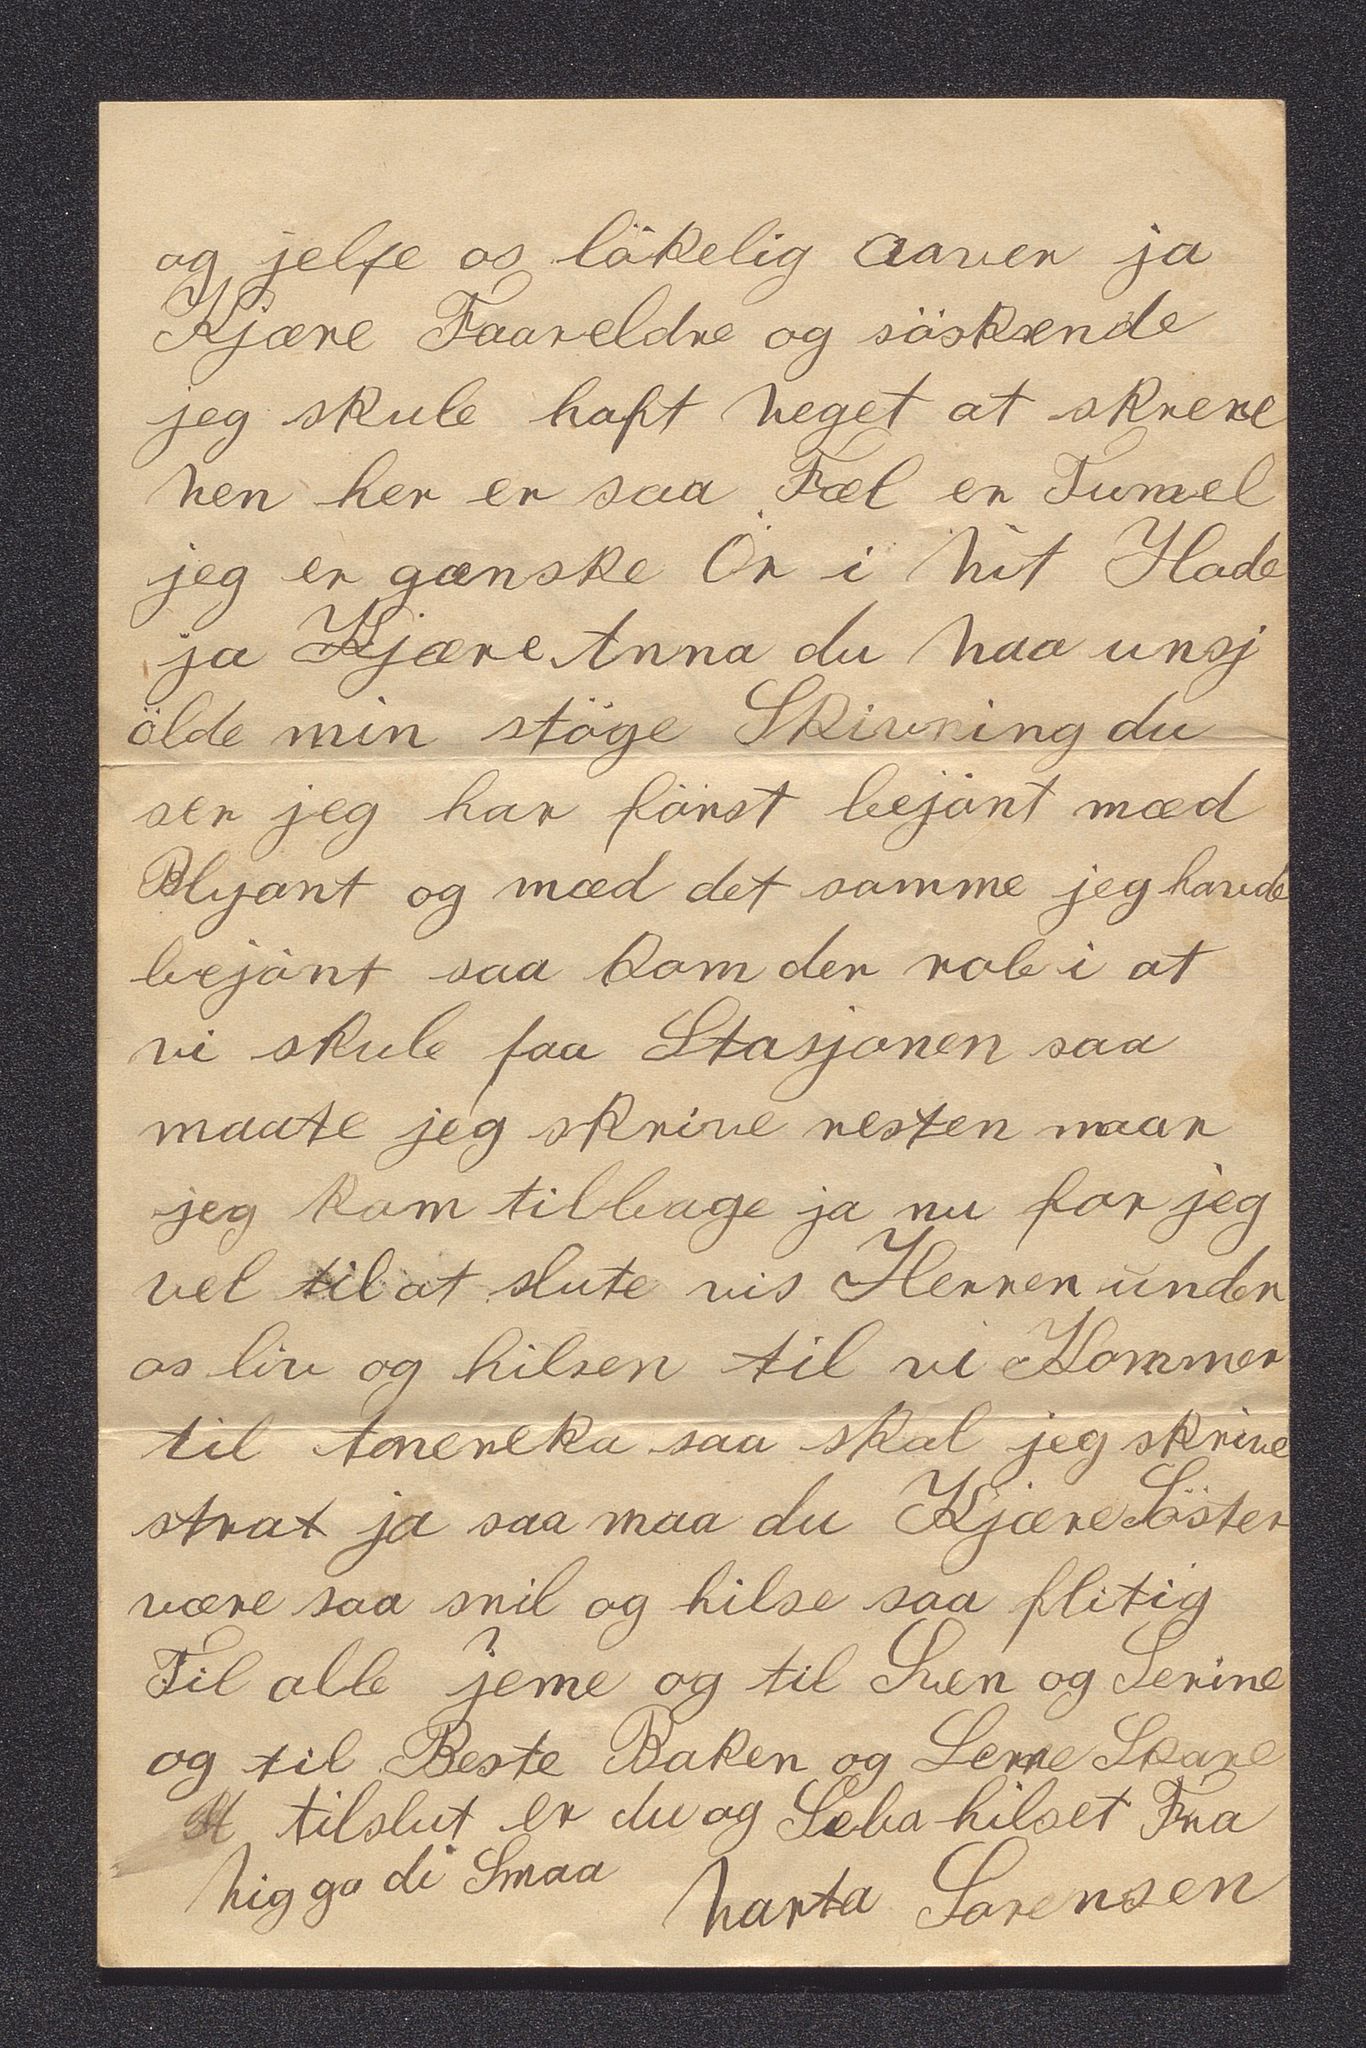 og jelfe os lökelig Aaver ja
Kjære Faareldre og söskende
jeg skule haft Meget at skreve
Men her er saa Fæl en Tumel
jeg er gænske Ör i Mit Hode
ja Kjære Anna du Maa unsj
ölde min stöge Skivning du
ser jeg har först bejönt mæd
Blyant og mæd det samme jeg havde
bejönt saa kom der rob i at
vi skule faa Stasjonen saa
maate jeg skrive resten naar
jeg kom tilbage ja nu for jeg
vel til at slute vis Herren under
os liv og hilsen til vi Kommer
til Amereka saa skal jeg skrive
strat ja saa maa du Kjære Söster
være saa snil og hilse saa flitig
Til alle jeme og til Sven og Serine
og til Beste Baken og Lerre Skare
At tilslut er du og Seba hilset Fra
Mig go di Smaa Marta Sorensen